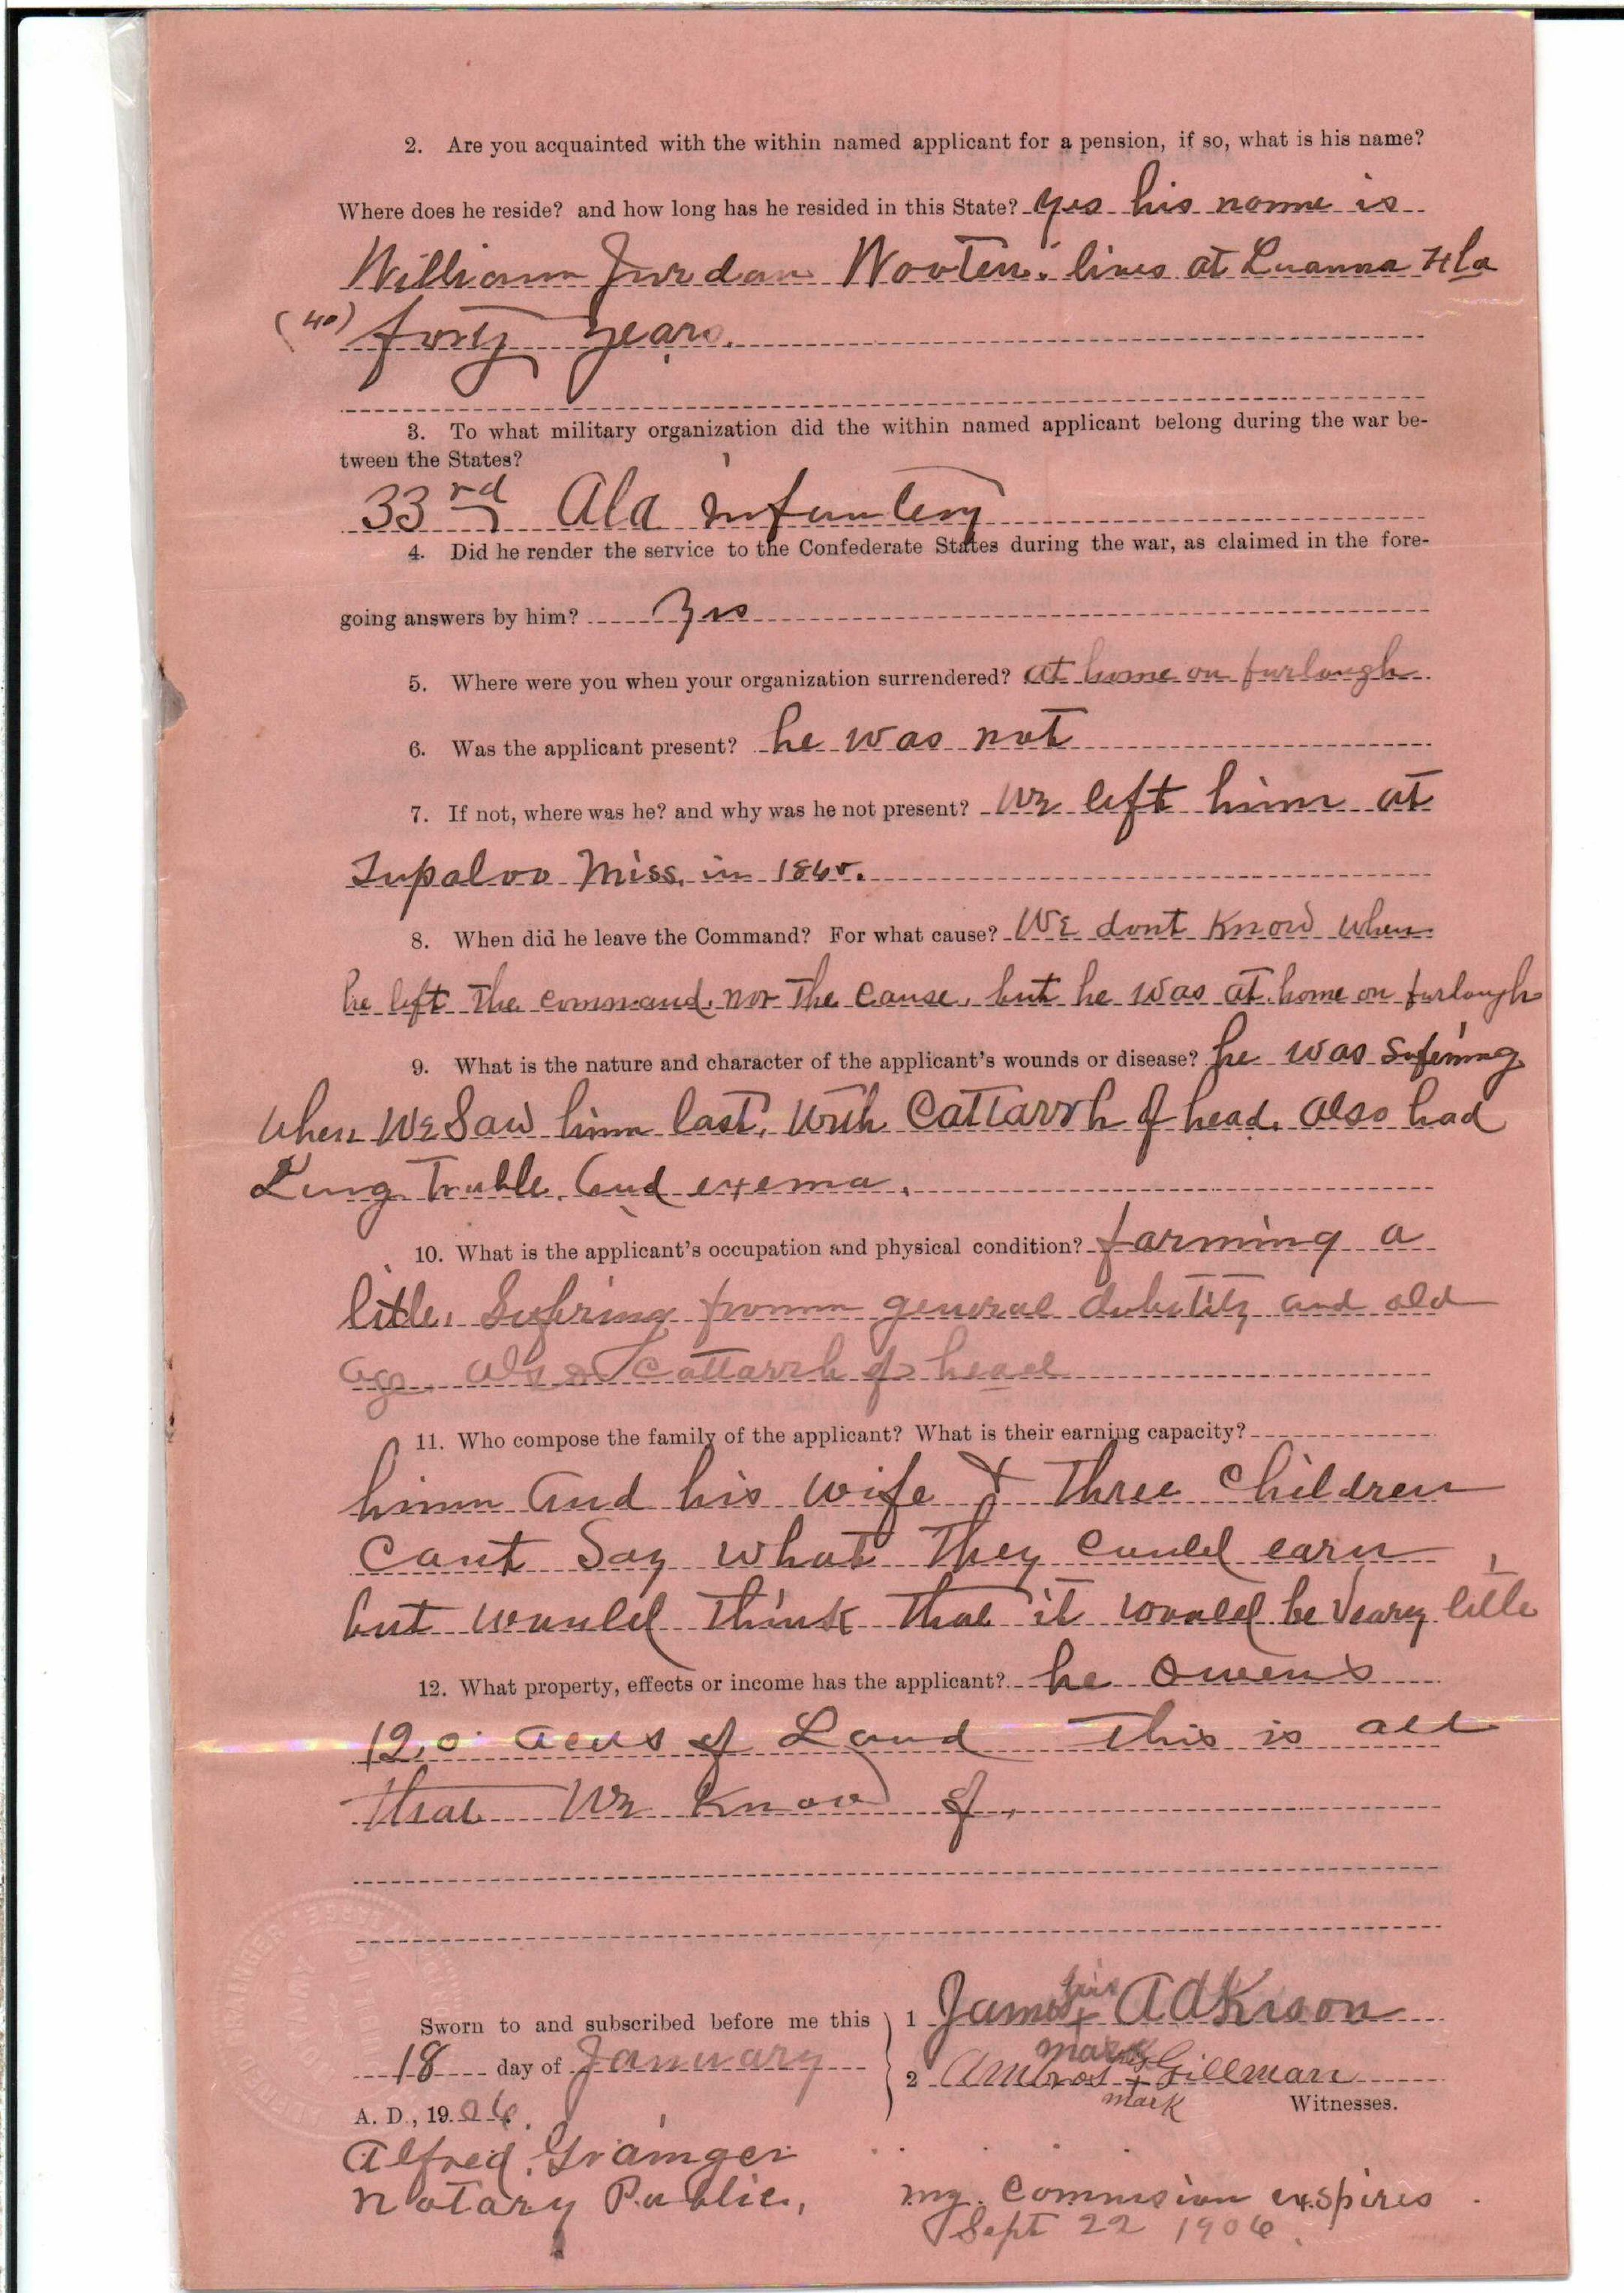 2. Are you acquainted with the within named applicant for a pension, if so, what is his name?
Where does he reside? and how long has he resided in this State? yes his nomne is
William Jurdan Wooten. lives at Luanna Fla
(40) forty years.
3. To what military organization did the within named applicant belong during the war be-
tween the States?
33rd Ala infantery
4. Did he render the service to the Confederate States during the war, as claimed in the fore-
going answers by him? yes
5. Where were you when your organization surrendered? at home on furlough
6. Was the applicant present? he was not
7. If not, where was he? and why was he not present? We left him at
Tupaloo Miss. in
8. When did he leave the Command? For what cause? We dont Know when
he left the command. nor the cause. but he was at home on furlough
9. What is the nature and character of the applicant's wounds or disease? he was Sufering
when We Saw himn last. With Cattarrh of head. also had
Lung Truble. and exema.
10. What is the applicant's occupation and physical condition? farming a
litle. Sufering fromn general dubitity and old
age. also Cattarrh of head
11. Who compose the family of the applicant? What is their earning capacity?
himn and his wife & three children
Cant Say what They could earn
but would think that it would be Veary litle
12. What property, effects or income has the applicant? he Owens
120 acers of Land This is all
that We Know of.
Sworn to and subscribed before me this
18 day of January
A. D., 1906.
1 James his x mark Adkison
2 Ambros his x mark Gillman
Witnesses.
Alfred. Grainger
Notary Public,
my. Commision exspires
Sept 22 1906.